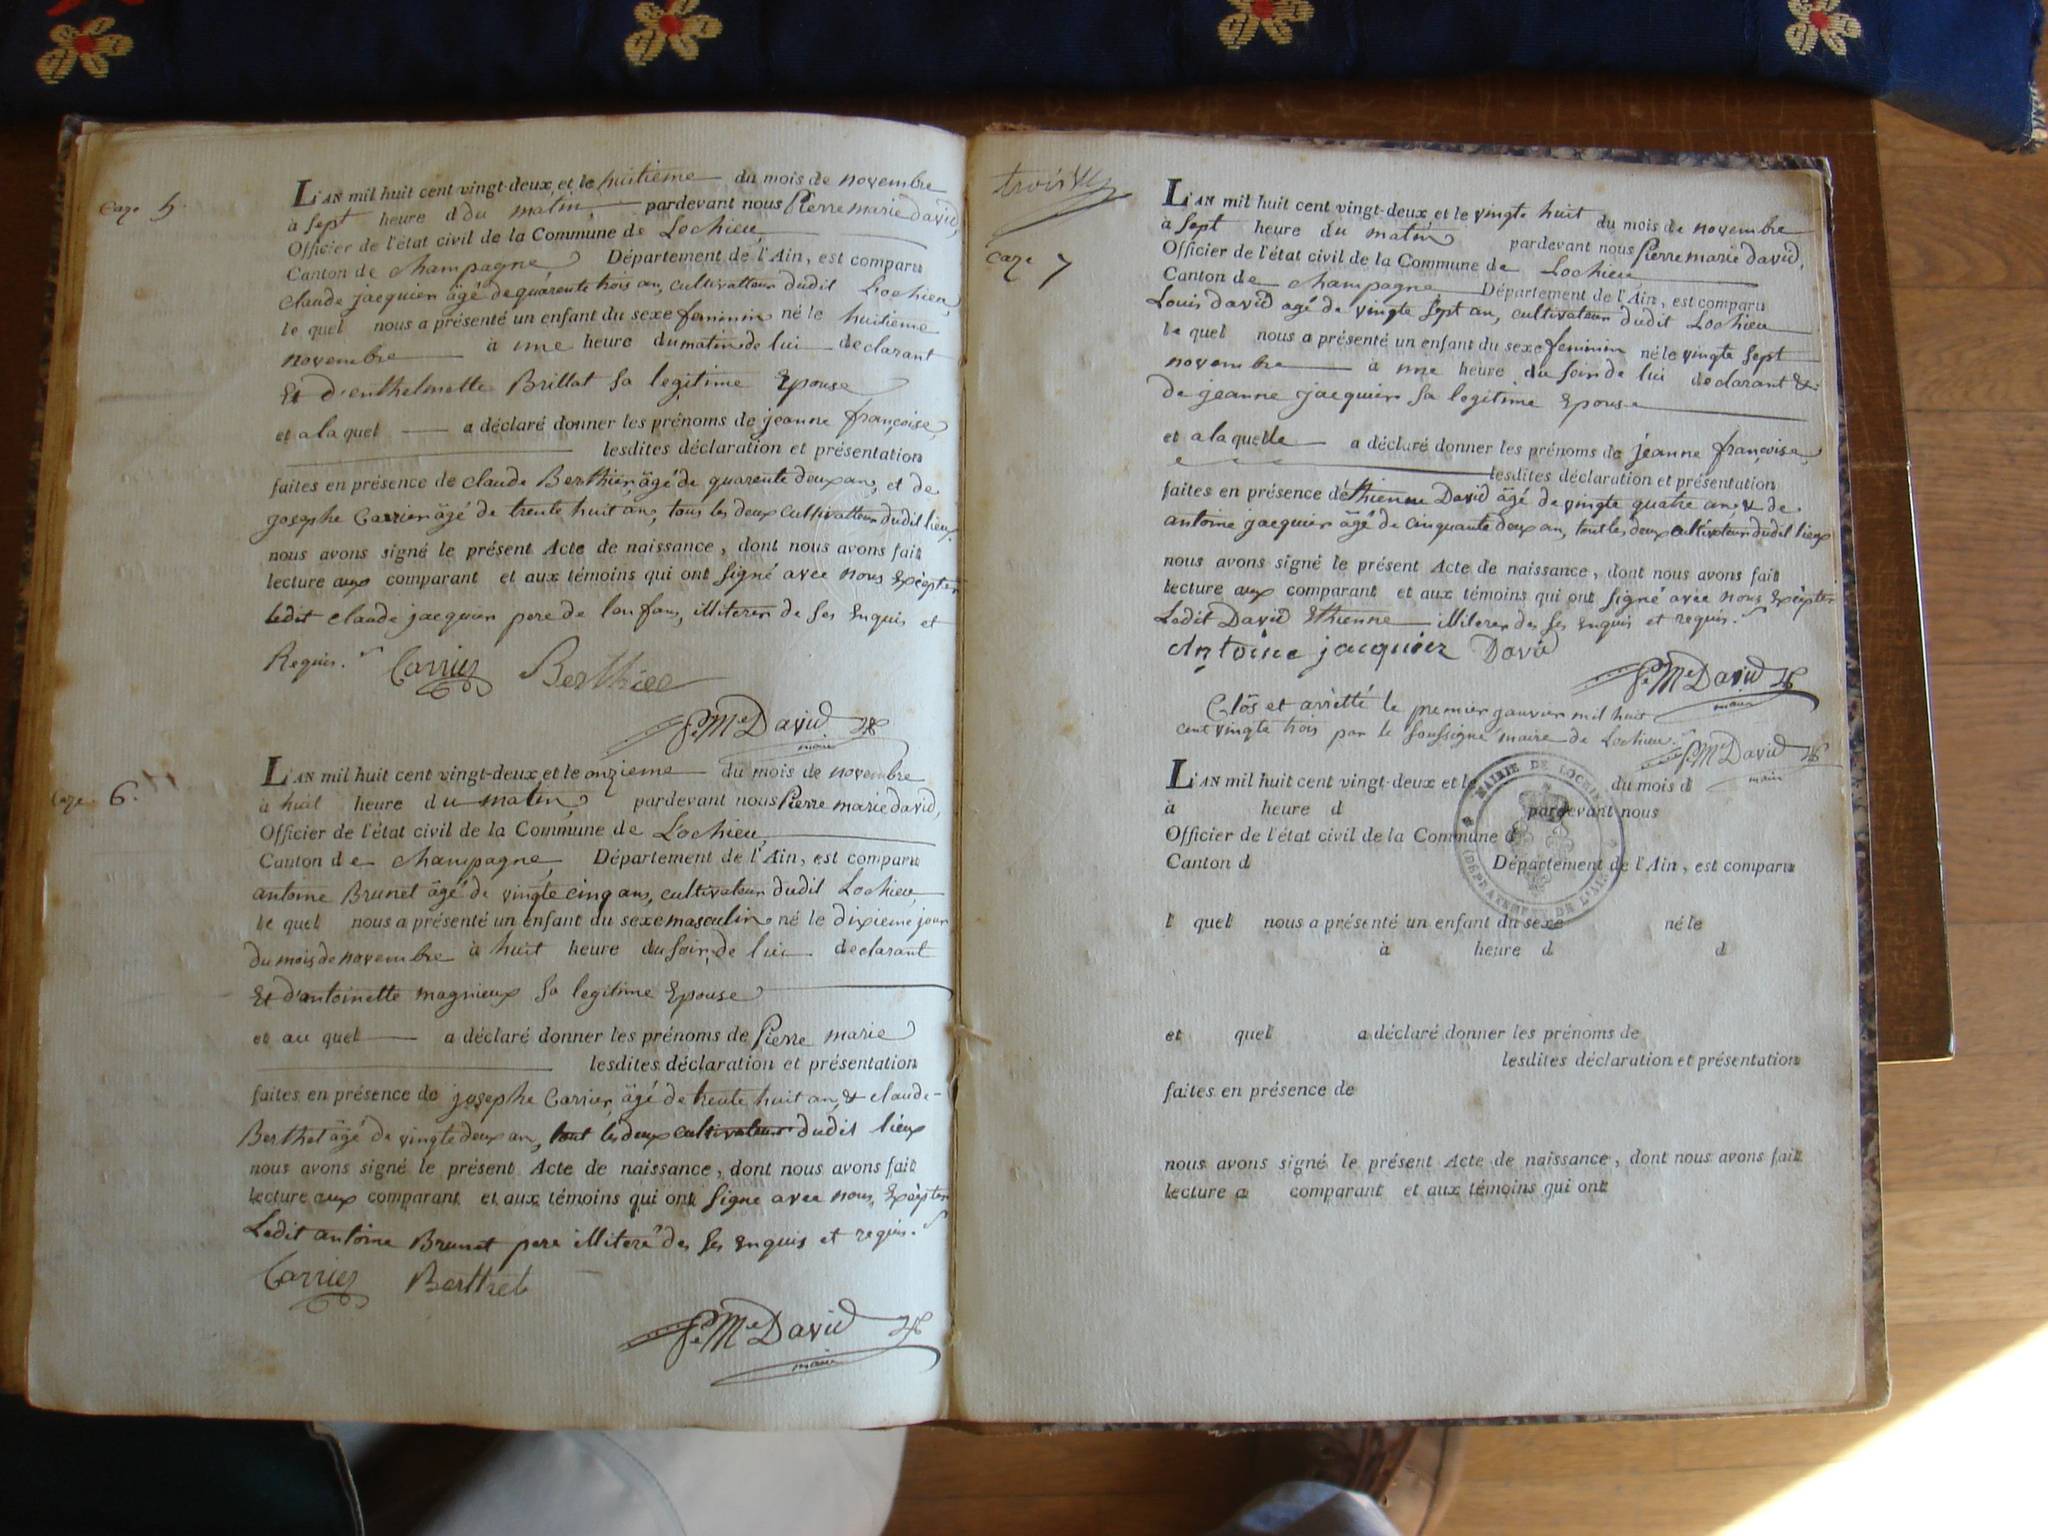 Caze 5.
L'AN mil huit cent vingt-deux et le huitieme du mois de novembre
à sept heure d du matin, pardevant nous Pierre marie david,
Officier de l'état civil de la Commune de Lochieu
Canton de champagne Département de l'Ain, est comparu
Claude jacquier âgé de quarente trois an, cultivatteur dudit Lochieu,
le quel nous a présenté un enfant du sexe feminin né le huitieme
novembre à une heure du matin de lui declarant
Et d'enthelmette Brillat sa legitime Epouse
et a la quel a déclaré donner les prénoms de jeanne françoise,
lesdites déclaration et présentation
faites en présence de claude Berthier, âgé de quarente deux an, et de
josephe Carrier âgé de trente huit an, tous les deux cultivatteur dudit lieux.
nous avons signé le présent Acte de naissance, dont nous avons fait
lecture aux comparant et aux témoins qui ont signé avec nous Excèpter
ledit claude jacquier pere de l'enfans, illiterer de ses Enquis et
Requis. Carrier Berthier
P.e M.e David
maire
Caze 6.
L'AN mil huit cent vingt-deux et le onzieme du mois de novembre
à huit heure du matin, pardevant nous Pierre marie david,
Officier de l'état civil de la Commune de Lochieu,
Canton de champagne, Département de l'Ain, est comparu
antoine Brunet âgé de vingte cinq ans, cultivateur dudit Lochieu,
le quel nous a présenté un enfant du sexe masculin né le dixieme jour
du mois de novembre à huit heure du soir, de lui declarant
Et d'antoinette magnieux sa legitime Epouse
et au quel a déclaré donner les prénoms de Pierre marie
lesdites déclaration et présentation
faites en présence de josephe Carrier, âgé de trente huit an, & claude-
Berthet âgé de vingte deux an, tout les deux cultivateur dudit lieux
nous avons signé le présent Acte de naissance, dont nous avons fait
lecture aux comparant et aux témoins qui ont signe avec nous, Excèpter
Ledit antoine Brunet pere illiteré de ses Enquis et requis.
Carrier Berthet
P.e M.e David
maire
trois
Caze 7
L'AN mil huit cent vingt-deux et le vingte huit du mois de novembre
à sept heure du matin pardevant nous Pierre marie david,
Officier de l'état civil de la Commune de Lochieu
Canton de champagne Département de l'Ain, est comparu
Louis david agé de vingte sept an, cultivateur dudit Lochieu
le quel nous a présenté un enfant du sexe feminin né le vingte sept
novembre à une heure du soir de lui declarant &
de jeanne jacquier sa legitime Epouse
et a la quelle a déclaré donner les prénoms de jeanne françoise,
lesdites déclaration et présentation
faites en présence d'éthienne David âgé de vingte quatre an & de
antoine jacquier âgé de cinquante deux an, tout les deux cultivateur dudit lieux
nous avons signé le présent Acte de naissance, dont nous avons fait
lecture aux comparant et aux témoins qui ont signé avec nous Excèpter
Ledit David Ethienne illiterer de ses Enquis et requis.
Antoine jacquier David
P.e M.e David
maire
Clôs et arrètté le premier janvier mil huit
cent vingte trois par le soussigne maire de Lochieu.
P.e M.e David
maire
MAIRIE DE LOCHIEU
(DÉPARTEMENT DE L'AIN)
L'AN mil huit cent vingt-deux et le du mois d
à heure d pardevant nous
Officier de l'état civil de la Commune d
Canton d Département de l'Ain, est comparu
l quel nous a présenté un enfant du sexe né le
à heure d d
et quel a déclaré donner les prénoms de
lesdites déclaration et présentation
faites en présence de
nous avons signé le présent Acte de naissance, dont nous avons fait
lecture a comparant et aux témoins qui ont